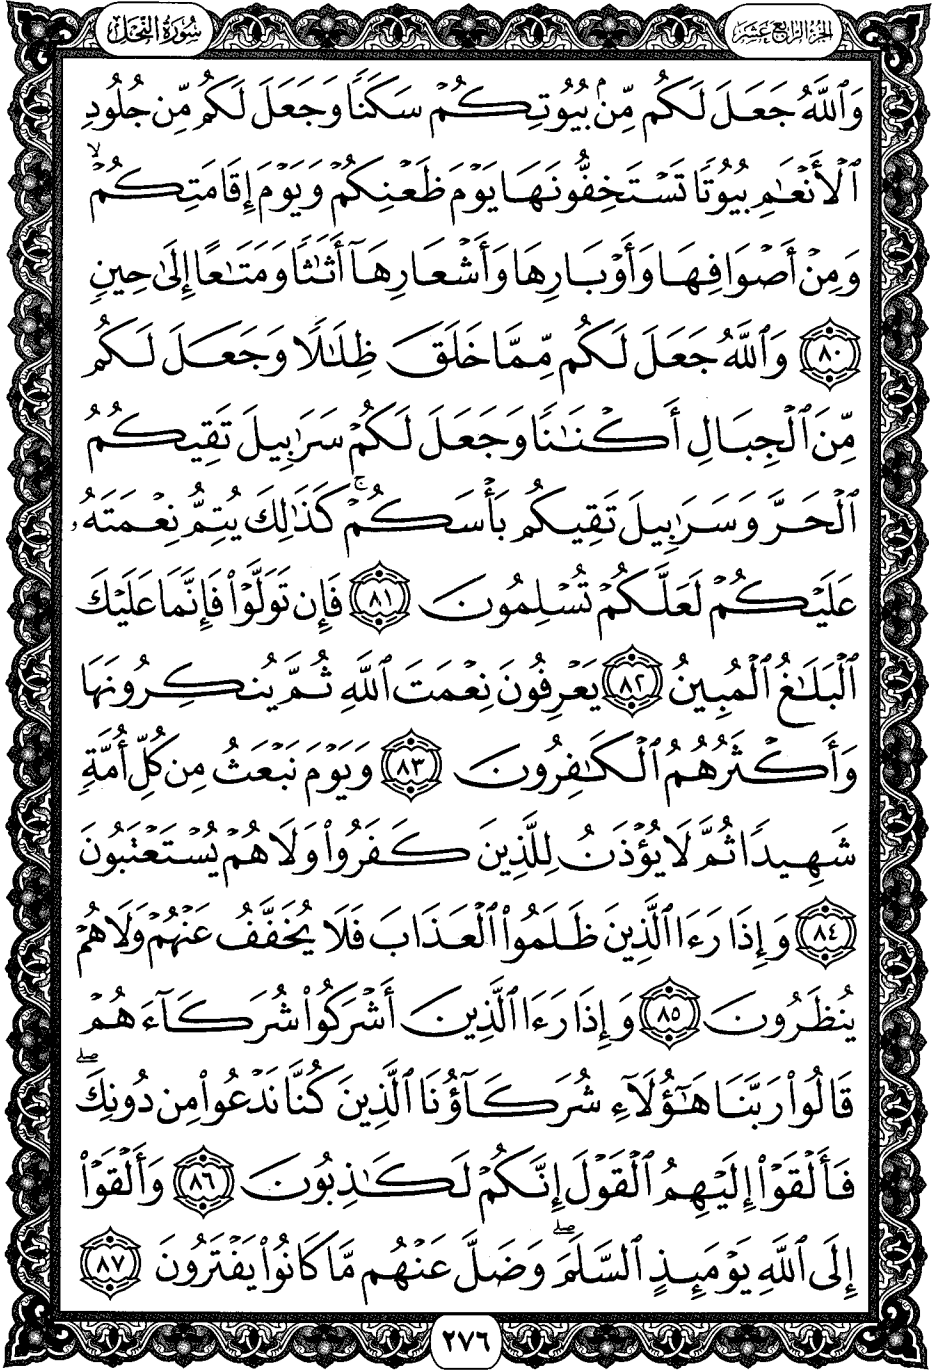 سُورَةُ النَّحْلِ
الجُزْءُ الرَّابِعَ عَشَرَ
وَٱللَّهُ جَعَلَ لَكُم مِّنۢ بُيُوتِكُمْ سَكَنًا وَجَعَلَ لَكُم مِّن جُلُودِ
ٱلْأَنْعَٰمِ بُيُوتًا تَسْتَخِفُّونَهَا يَوْمَ ظَعْنِكُمْ وَيَوْمَ إِقَامَتِكُمْ ۙ
وَمِنْ أَصْوَافِهَا وَأَوْبَارِهَا وَأَشْعَارِهَآ أَثَٰثًا وَمَتَٰعًا إِلَىٰ حِينٍ
٨٠ وَٱللَّهُ جَعَلَ لَكُم مِّمَّا خَلَقَ ظِلَٰلًا وَجَعَلَ لَكُم
مِّنَ ٱلْجِبَالِ أَكْنَٰنًا وَجَعَلَ لَكُمْ سَرَٰبِيلَ تَقِيكُمُ
ٱلْحَرَّ وَسَرَٰبِيلَ تَقِيكُم بَأْسَكُمْ ۚ كَذَٰلِكَ يُتِمُّ نِعْمَتَهُۥ
عَلَيْكُمْ لَعَلَّكُمْ تُسْلِمُونَ ٨١ فَإِن تَوَلَّوْا۟ فَإِنَّمَا عَلَيْكَ
ٱلْبَلَٰغُ ٱلْمُبِينُ ٨٢ يَعْرِفُونَ نِعْمَتَ ٱللَّهِ ثُمَّ يُنكِرُونَهَا
وَأَكْثَرُهُمُ ٱلْكَٰفِرُونَ ٨٣ وَيَوْمَ نَبْعَثُ مِن كُلِّ أُمَّةٍ
شَهِيدًا ثُمَّ لَا يُؤْذَنُ لِلَّذِينَ كَفَرُوا۟ وَلَا هُمْ يُسْتَعْتَبُونَ
٨٤ وَإِذَا رَءَا ٱلَّذِينَ ظَلَمُوا۟ ٱلْعَذَابَ فَلَا يُخَفَّفُ عَنْهُمْ وَلَا هُمْ
يُنظَرُونَ ٨٥ وَإِذَا رَءَا ٱلَّذِينَ أَشْرَكُوا۟ شُرَكَآءَهُمْ
قَالُوا۟ رَبَّنَا هَٰٓؤُلَآءِ شُرَكَآؤُنَا ٱلَّذِينَ كُنَّا نَدْعُوا۟ مِن دُونِكَ ۖ
فَأَلْقَوْا۟ إِلَيْهِمُ ٱلْقَوْلَ إِنَّكُمْ لَكَٰذِبُونَ ٨٦ وَأَلْقَوْا۟
إِلَى ٱللَّهِ يَوْمَئِذٍ ٱلسَّلَمَ ۖ وَضَلَّ عَنْهُم مَّا كَانُوا۟ يَفْتَرُونَ ٨٧
٢٧٦